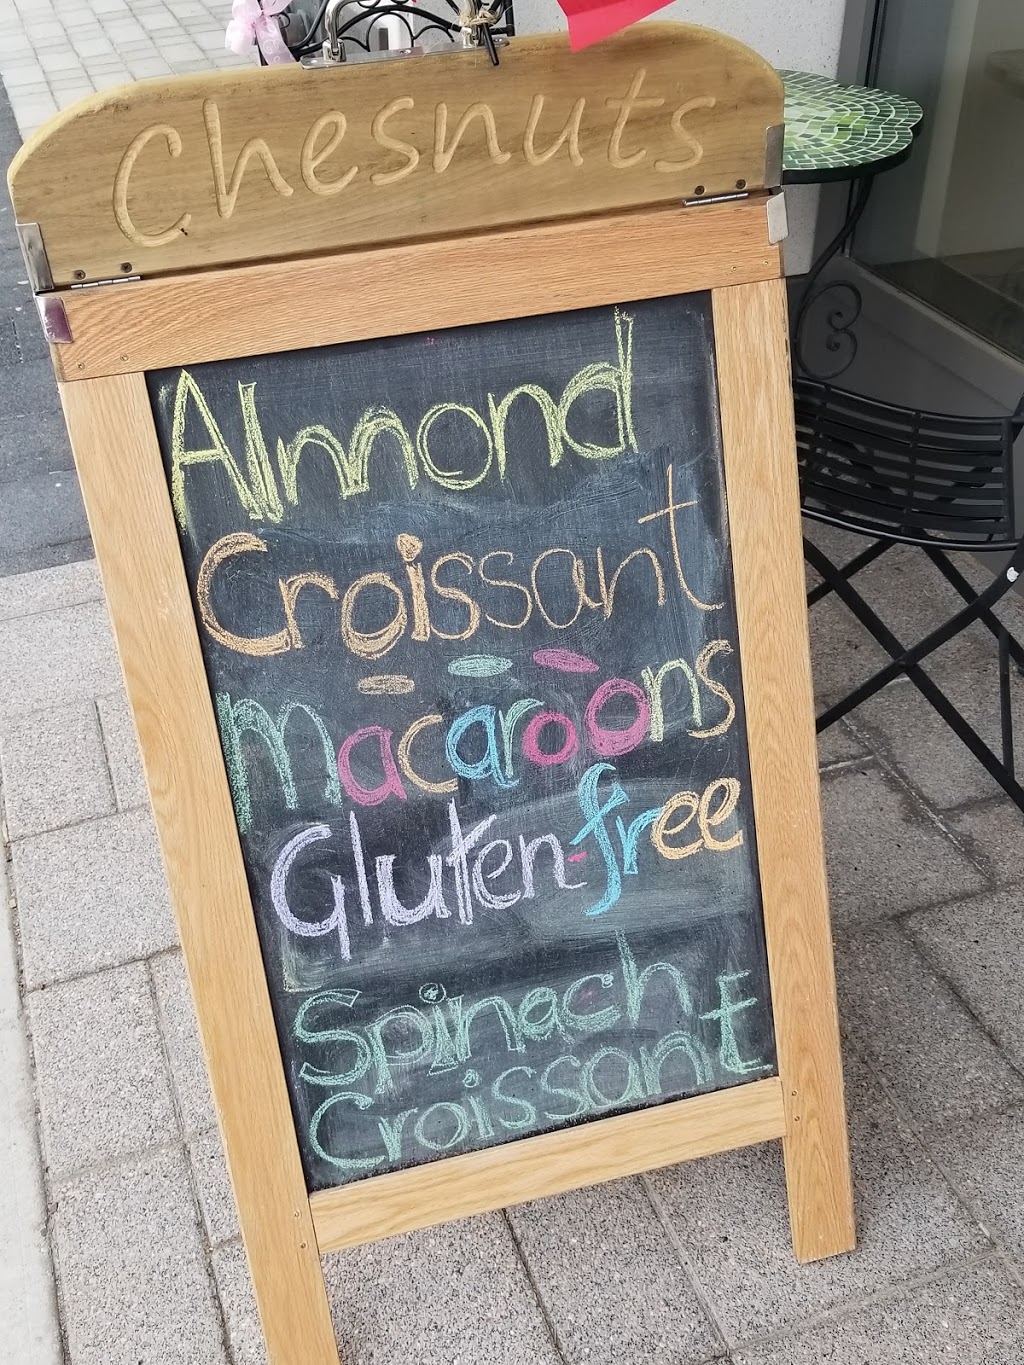 Chesnuts
Almond
Croissant
macaroons
Gluten-free
Spinach
Croissant